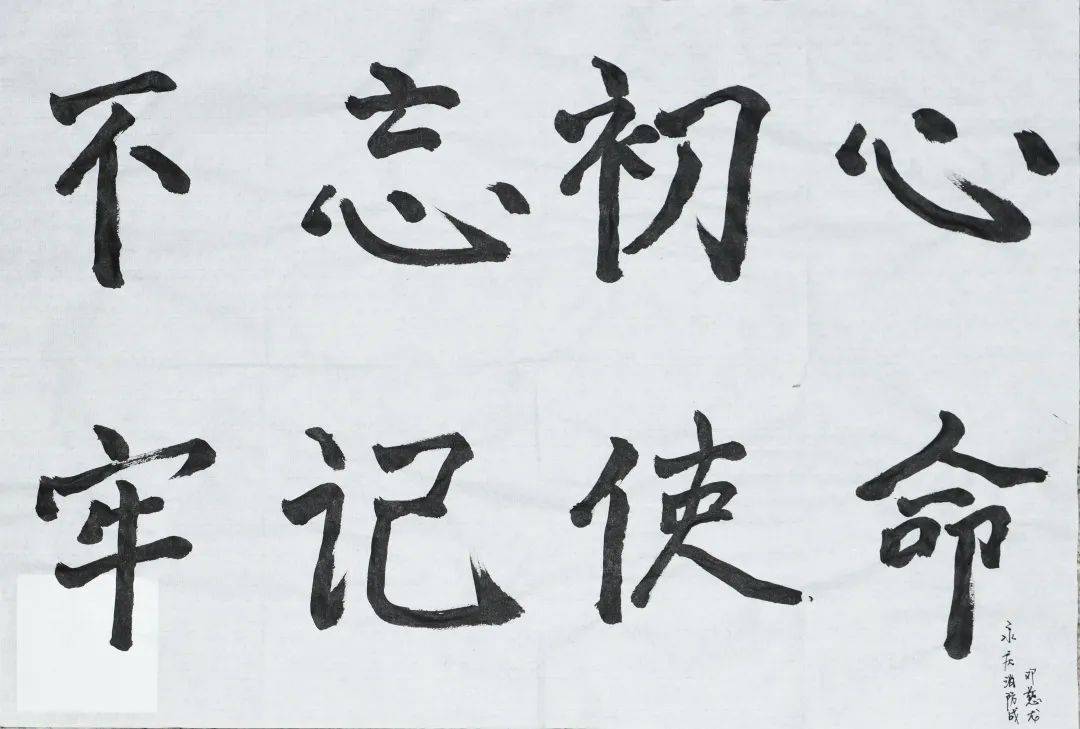 不忘初心
牢记使命
永庆消防战
邓慈龙